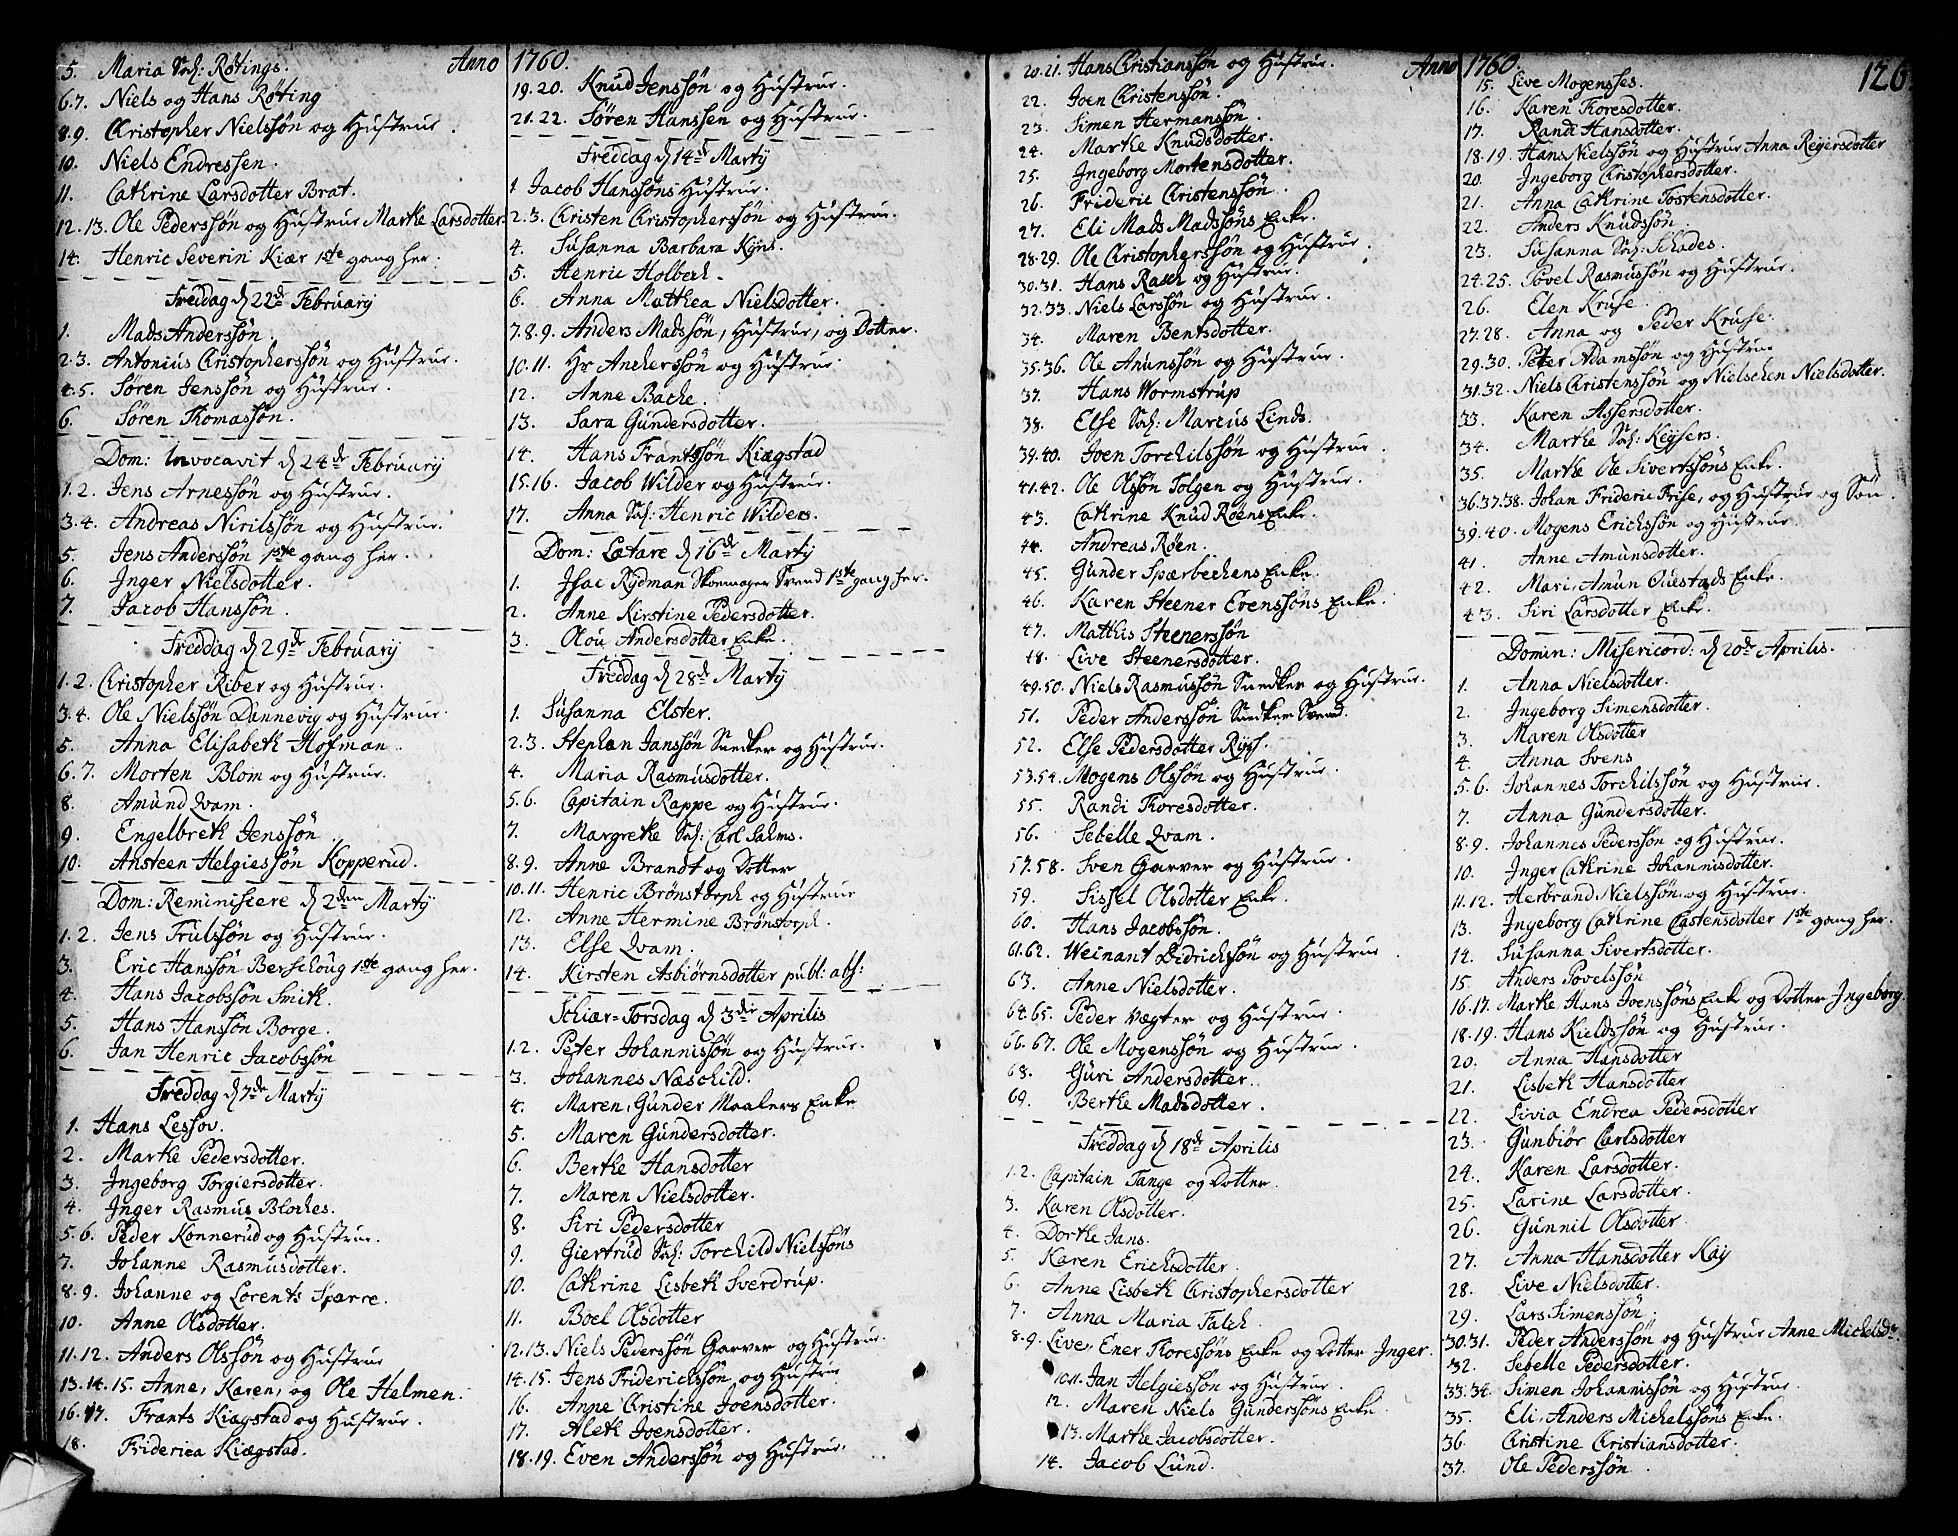 Anno 1760.
5. Maria Sal: Røtings.
6.7. Niels og Hans Røting
8.9. Christopher Nielssøn og Hustrue.
10. Niels Endressen.
11. Cathrine Larsdotter Brat.
12.13. Ole Pederssøn og Hustrue Marthe Larsdotter
14. Henric Severin Kiær 1ste gang her.
Freddag d 22de February
1. Mads Anderssøn
2.3. Antonius Christopherssøn og Hustrue.
4.5. Søren Jenssøn og Hustrue.
6. Søren Thomassøn.
Dom: Invocavit d 24de February
1.2. Jens Arnessøn og Hustrue.
3.4. Andreas Nirilssøn og Hustrue.
5. Jens Anderssøn 1ste gang her.
6. Inger Nielsdotter.
7. Jacob Hanssøn.
Freddag d 29de February
1.2. Christopher Riber og Hustrue.
3.4. Ole Nielssøn Dannevig og Hustrue.
5. Anna Elisabeth Hofman.
6.7. Morten Blom og Hustrue.
8. Amund Qvam.
9. Engelbreth Jenssøn
10. Ansteen Helgiessøn Kopperud.
Dom: Reminiscere d 2den Marty
1.2. Jens Trulssøn og Hustrue.
3. Eric Hanssøn Berschoug 1ste gang her.
4. Hans Jacobssøn Smith.
5. Hans Hanssøn Borge.
6. Jan Henric Jacobssøn
Freddag d 7de Marty
1. Hans Lessov.
2. Marthe Pedersdotter.
3. Ingeborg Torgiersdotter.
4. Inger Rasmus Bloches.
5.6. Peder Konnerud og Hustrue.
7. Johanne Rasmusdotter.
8.9. Johanne og Lorents Sparre.
10. Anne Olsdotter.
11.12. Anders Olssøn og Hustrue
13.14.15. Anne, Karen, og Ole Helmen.
16.17. Frants Kiægstad og Hustrue.
18. Friderica Kiægstad.
19.20. Knud Jenssøn og Hustrue.
21.22. Søren Hanssen og Hustrue.
Freddag d 14de Marty
1 Jacob Hanssøns Hustrue.
2.3. Christen Christopherssøn og Hustrue.
4. Susanna Barbara Kyns.
5. Henric Holbech.
6. Anna Matthea Nielsdotter.
7.8.9. Anders Madssøn, Hustrue, og Dotter.
10.11. Hr Ancherssøn og Hustrue
12. Anne Bache.
13. Sara Gundersdotter.
14. Hans Frantssøn Kiægstad
15.16. Jacob Wilder og Hustrue.
17. Anna Sal: Henric Wilders.
Dom: Lætare d 16de Marty
1. Isac Rydman Skoemager Svend 1ste gang her.
2. Anne Kirstine Pedersdotter.
3. Olou Andersdotter Enke.
Freddag d 28de Marty
1. Susanna Elster.
2.3. Stephan Janssøn Snedker og Hustrue.
4. Maria Rasmusdotter.
5.6. Capitain Rappe og Hustrue.
7. Margrethe Sal: Carl Salms.
8.9. Anne Brandt og Dotter
10.11. Henric Brønstorph og Hustrue
12. Anne Hermine Brønstorph.
13. Else Qvam.
14. Kirsten Asbiørnsdotter publ: abs:
Schiær-Torsdag d 3die Aprilis
1.2. Peter Johannissøn og Hustrue.
3. Johannes Næschild.
4. Maren, Gunder Maalers Enke
5. Maren Gundersdotter.
6. Berthe Hansdotter
7. Maren Nielsdotter.
8. Siri Pedersdotter
9. Giertrud Sal: Torchild Nielssøns
10. Cathrine Lisbeth Sverdrup.
11. Boel Olsdotter
12.13. Niels Pederssøn Garver og Hustrue.
14.15. Jens Friderichssøn, og Hustrue
16. Anne Christine Joensdotter.
17. Aleth Joensdotter.
18.19. Even Anderssøn og Hustrue.
Anno 1760. 126
20.21. Hans Christianssøn og Hustrue.
22. Joen Christenssøn.
23. Simen Hermanssøn.
24. Marthe Knudsdotter.
25. Ingeborg Mortensdotter.
26. Frideric Christenssøn.
27. Eli Mads Madssøns Enke.
28.29. Ole Christopherssøn og Hustrue.
30.31. Hans Rasch og Hustrue.
32.33. Niels Larssøn og Hustrue.
34. Maren Bentsdotter.
35.36. Ole Amunssøn og Hustrue.
37. Hans Wormstrup
38. Else Sal: Marcus Linds.
39.40. Joen Torchilssøn og Hustrue.
41.42. Ole Olssøn Tolgen og Hustrue.
43. Cathrine Knud Røens Enke.
44. Andreas Røen.
45. Gunder Spærbechens Enke.
46. Karen Steener Evenssøns Enke.
47. Matthis Steenerssøn
48. Live Steenersdotter.
49.50. Niels Rasmussøn Snedker og Hustrue.
51. Peder Anderssøn Snedker Svend.
52. Else Pedersdotter Rygh.
53.54. Mogens Olssøn og Hustrue.
55. Randi Thoresdotter.
56. Sebelle Qvam.
57.58. Sven Garver og Hustrue.
59. Sissel Olsdotter Enke.
60. Hans Jacobssøn.
61.62. Weinant Didrichssøn og Hustrue
63. Anne Nielsdotter.
64.65. Peder Vægter og Hustrue.
66.67. Ole Mogenssøn og Hustrue.
68. Guri Andersdotter.
69. Berthe Madsdotter.
Freddag d 18de Aprilis
1.2. Capitain Tange og Dotter.
3. Karen Olsdotter.
4. Dorthe Jans.
5. Karen Erichsdotter.
6. Anne Lisbeth Christophersdotter
7. Anna Maria Falch.
8.9. Live, Ener Thoressøns Enke og Dotter Inger.
10.11. Jan Helgiessøn og Hustrue.
12. Maren Niels Gunderssøns Enke.
13. Marthe Jacobsdotter.
14. Jacob Lund.
15. Live Mogenses.
16. Karen Thoresdotter.
17. Randi Hansdotter.
18.19. Hans Nielssøn og Hustrue Anna Reyersdotter
20. Ingeborg Christophersdotter.
21. Anna Cathrine Tostensdotter.
22. Anders Knudssøn
23. Susanna Sal: Schades.
24.25. Povel Rasmussøn og Hustrue.
26. Elen Kruse.
27.28. Anna og Peder Kruse.
29.30. Peter Adamssøn og Hustrue
31.32. Niels Christenssøn og Nielschen Nielsdotter.
33. Karen Assersdotter.
34. Marthe Sal: Keysers.
35. Marthe Ole Sivertssøns Enke.
36.37.38. Johan Frideric Frise, og Hustrue og Søn.
39.40. Mogens Erichssøn og Hustrue.
41. Anne Amunsdotter.
42. Mari Amun Questads Enke.
43. Siri Larsdotter Enke.
Domin: Misericord: d 20de Aprilis.
1. Anna Nielsdotter.
2. Ingeborg Simensdotter.
3. Maren Olsdotter
4. Anna Svens
5.6. Johannes Torchilssøn og Hustrue.
7. Anna Gundersdotter.
8.9. Johannes Pederssøn og Hustrue.
10. Inger Cathrine Johannisdotter.
11.12. Herbrand Nielssøn og Hustrue.
13. Ingeborg Cathrine Castensdotter 1ste gang her.
14. Susanna Sivertsdotter.
15. Anders Povelssøn
16.17. Marthe Hans Joenssøns Enke og Dotter Ingeborg.
18.19. Hans Kieldssøn og Hustrue.
20. Anna Hansdotter
21. Lisbeth Hansdotter
22. Livia Endrea Pedersdotter
23. Gunbiør Carlsdotter
24. Karen Larsdotter.
25. Larine Larsdotter.
26. Gunnil Olsdotter.
27. Anna Hansdotter Kay
28. Live Nielsdotter.
29. Lars Simenssøn.
30.31. Peder Anderssøn og Hustrue Anne Michelsdr
32. Sebelle Pedersdotter.
33.34. Simen Johannissøn og Hustrue.
35. Eli, Anders Michelssøns Enke.
36. Christine Christiansdotter.
37. Ole Pederssøn.